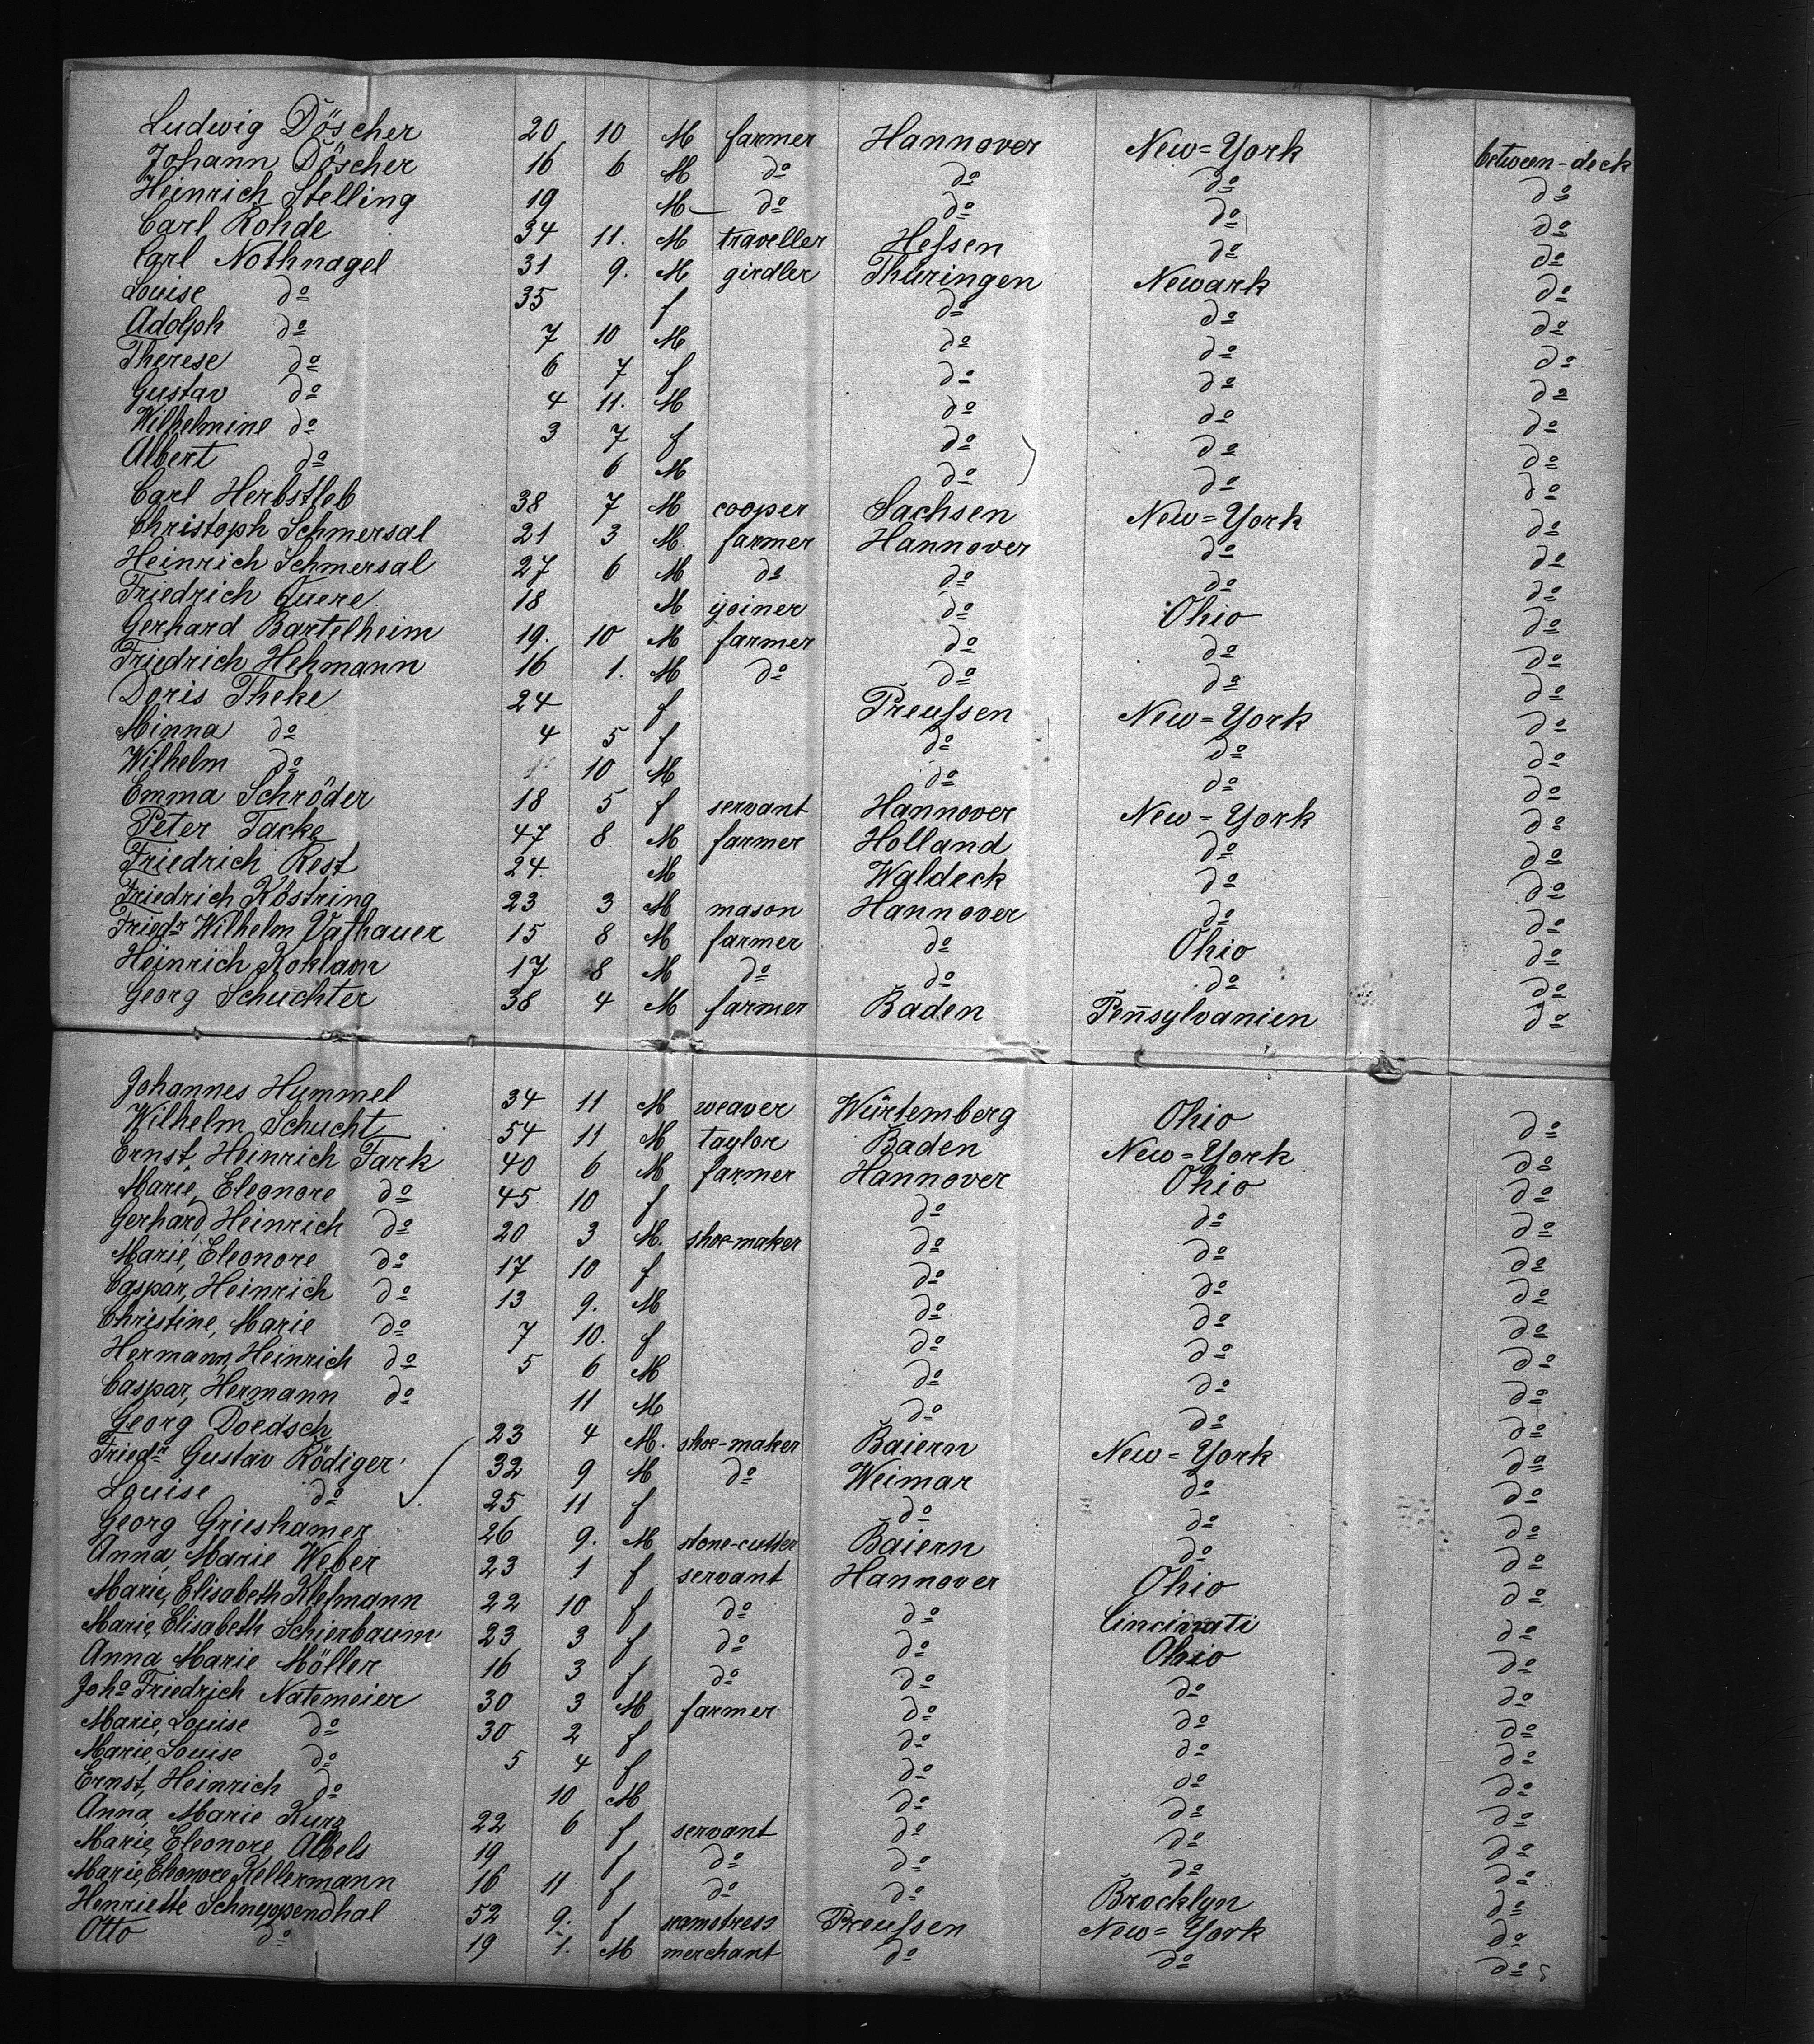 Ludwig Döscher 20 10 M farmer Hannover New=York between-deck
Johann Döscher 16 6 M do do do do
Heinrich Stelling 19 M do do do do
Carl Rohde 34 11. M traveller Hessen do do
Carl Nothnagel 31 9. M girdler Thüringen Newark do
Louise do 35 f do do do
Adolph do 7 10 M do do do
Therese do 6 7 f do do do
Gustav do 4 11. M do do do
Wilhelmine do 3 7 f do do do
Albert do 6 M do do do
Carl Herbstleb 38 7 M cooper Sachsen New=York do
Christoph Schmersal 21 3 M farmer Hannover do do
Heinrich Schmersal 27 6 M do do do do
Friedrich Quere 18 M yoiner do Ohio do
Gerhard Bartelheim 19. 10 M farmer do do do
Friedrich Hehmann 16 1. M do do do do
Doris Theke 24 f Preussen New=York do
Minna do 4 5 f do do do
Wilhelm do 10 M do do do
Emma Schröder 18 5 f servant Hannover New=York do
Peter Tacke 47 8 M farmer Holland do do
Friedrich Rest 24. M Waldeck do do
Friedrich Köstring 23 3 M mason Hannover do do
Friedr Wilhelm Vathauer 15 8 M farmer do Ohio do
Heinrich 17 8 M do do do do
Georg Schuchter 38 4 M farmer Baden Peñsylvanien do
Johannes Hummel 34 11 M weaver Würtemberg Ohio do
Wilhelm Schucht 54 11 M taylor Baden New=York do
Ernst Heinrich Fark 40 6 M farmer Hannover Ohio do
Marie, Eleonore do 45 10 f do do do
Gerhard, Heinrich do 20 3 M. shoe-maker do do do
Marie, Eleonore do 17 10 f do do do
Caspar, Heinrich do 13 9. M do do do
Christine, Marie do 7 10. f do do do
Hermann, Heinrich do 5 6 M do do do
Caspar, Hermann do 11 M do do do
Georg Doedsch 23 4 M. shoe-maker Baiern New=York do
Friedr Gustav Rödiger 32 9 M do Weimar do do
Louise do 25 11 f do do do
Georg Grieshamer 26 9. M stone-cutter Baiern do do
Anna, Marie Weber 23 1 f servant Hannover Ohio do
Marie, Elisabeth Klesmann 22 10 f do do Cincinnati do
Marie, Elisabeth Schierbaum 23 3 f do do Ohio do
Anna Marie Möller 16 3 f do do do do
Joho Friedrich Natemeier 30 3 M farmer do do do
Marie, Louise do 30 2 f do do do
Marie, Louise do 5 4 f do do do
Ernst, Heinrich do 10 M do do do
Anna, Marie Kurz 22 6 f servant do do do
Marie, Eleonore Albels 19 f do do do do
Marie, Eleonore Kellermann 16 11 f do do Brocklyn do
Henriette Schneppendhal 52 9. f seamstress Preussen New=York do
Otto do 19 1. M merchant do do do